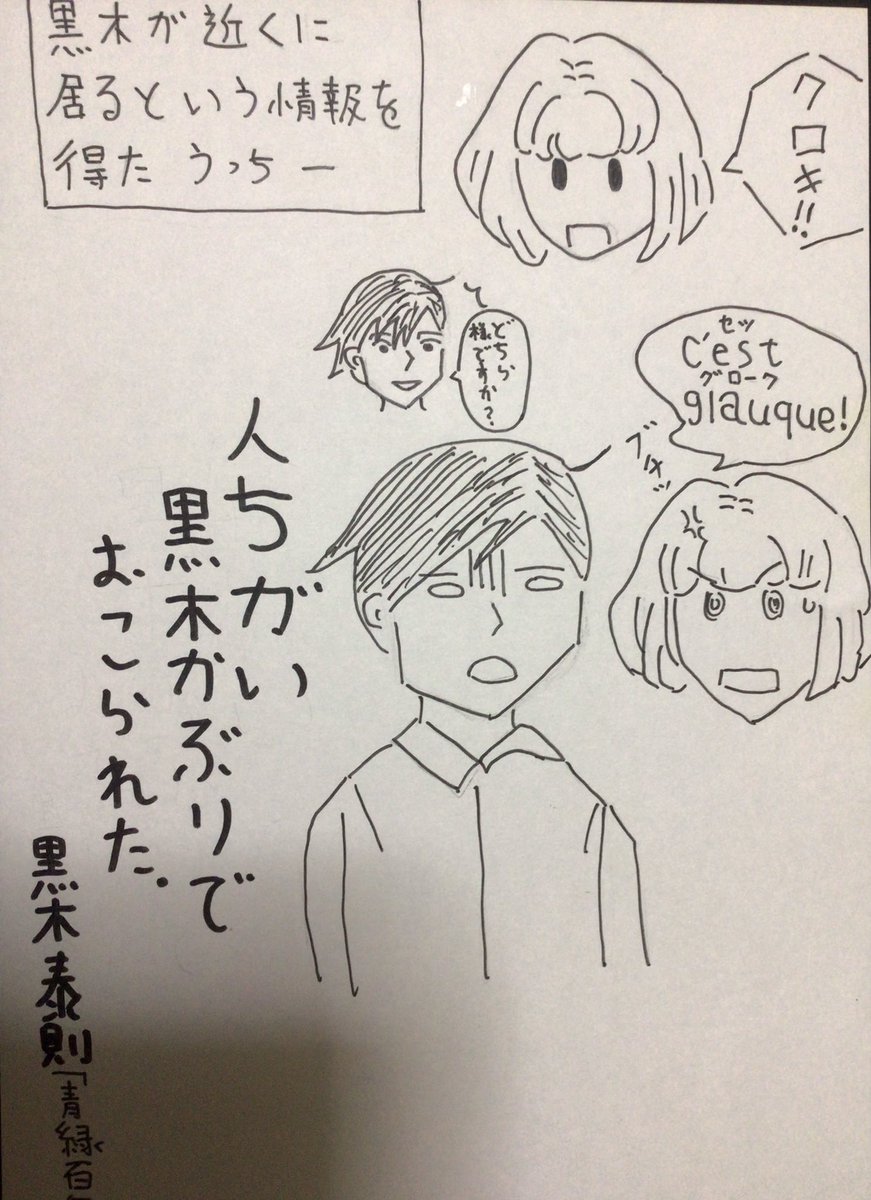 黒木が近くに
居るという情報を
得たうっちー
クロキ!!
どちら
様ですか?
セッ
C'est
グローク
glauque!
ブチッ
人ちがい
黒木かぶりで
おこられた.
黒木泰則
「青緑石